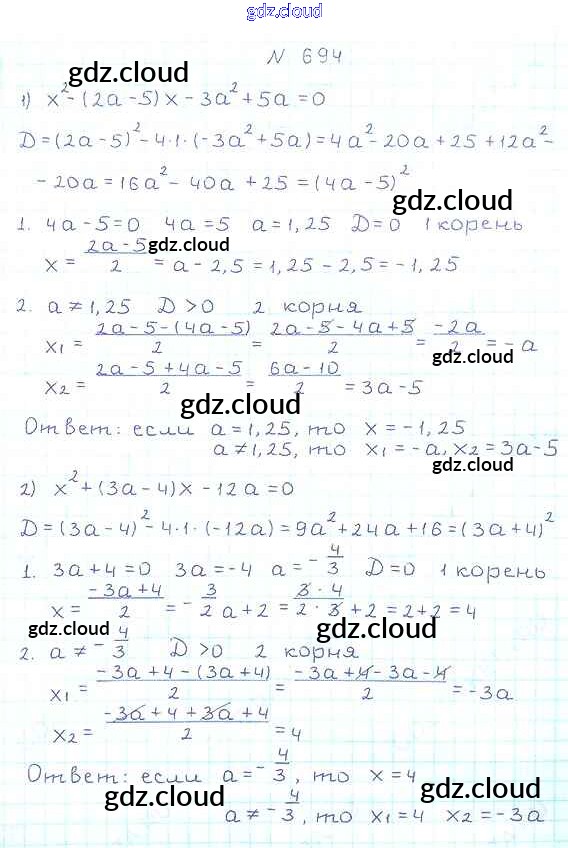 gdz.cloud
N 694
gdz.cloud
1) x² - (2a - 5)x - 3a² + 5a = 0
gdz.cloud
D = (2a - 5)² - 4·1·(-3a² + 5a) = 4a² - 20a + 25 + 12a² -
- 20a = 16a² - 40a + 25 = (4a - 5)²
gdz.cloud
1. 4a - 5 = 0 4a = 5 a = 1,25 D = 0 1 корень
gdz.cloud
x = (2a - 5)/2 = a - 2,5 = 1,25 - 2,5 = -1,25
2. a ≠ 1,25 D > 0 2 корня
x₁ = (2a - 5 - (4a - 5))/2 = (2a - 5 - 4a + 5)/2 = (-2a)/2 = -a
gdz.cloud
x₂ = (2a - 5 + 4a - 5)/2 = (6a - 10)/2 = 3a - 5
gdz.cloud
Ответ: если a = 1,25, то x = -1,25
a ≠ 1,25, то x₁ = -a, x₂ = 3a - 5
gdz.cloud
2) x² + (3a - 4)x - 12a = 0
gdz.cloud
D = (3a - 4)² - 4·1·(-12a) = 9a² + 24a + 16 = (3a + 4)²
1. 3a + 4 = 0 3a = -4 a = -4/3 D = 0 1 корень
x = (-3a + 4)/2 = -3/2 a + 2 = (3·4)/(2·3) + 2 = 2 + 2 = 4
gdz.cloud
gdz.cloud
2. a ≠ -4/3 D > 0 2 корня
x₁ = (-3a + 4 - (3a + 4))/2 = (-3a + 4 - 3a - 4)/2 = -3a
x₂ = (-3a + 4 + 3a + 4)/2 = 4
gdz.cloud
Ответ: если a = -4/3, то x = 4
gdz.cloud
gdz.cloud
a ≠ -4/3, то x₁ = 4 x₂ = -3a